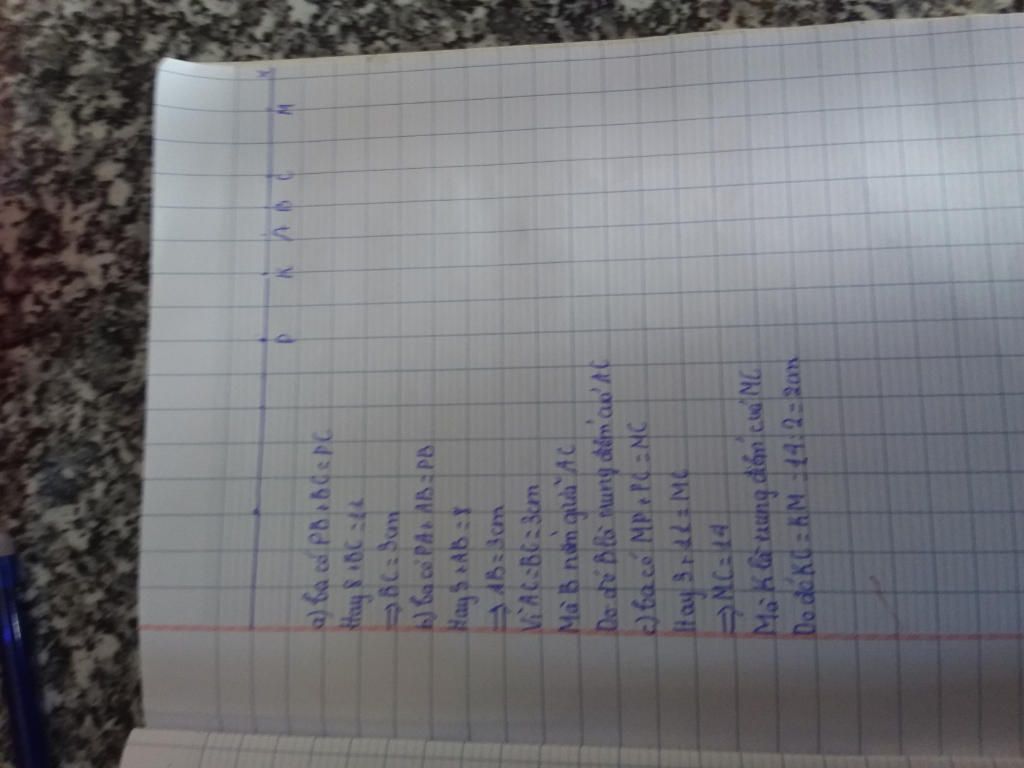 P K A B C M x
a) Ta có PB + BC = PC
Hay 8 + BC = 11
=> BC = 3cm
b) Ta có PA + AB = PB
Hay 5 + AB = 8
=> AB = 3cm
Vì AC = BC = 3cm
Mà B nằm giữa AC
Do đó B là trung điểm của AC
c) Ta có MP + PC = MC
Hay 3 + 11 = MC
=> MC = 14
Mà K là trung điểm của MC
Do đó KC = KM = 14 : 2 = 2cm